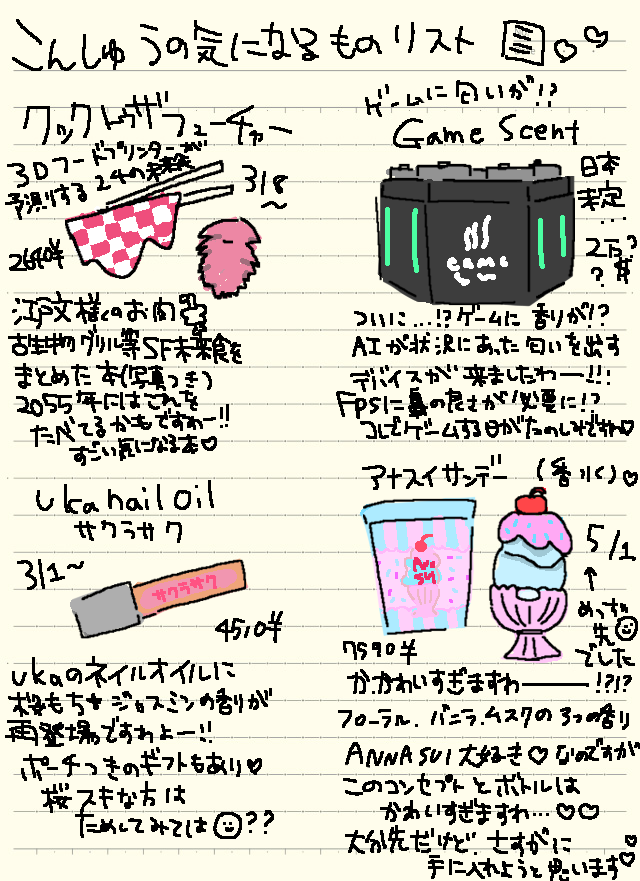 こんしゅうの気になるものリスト
クックトゥザフューチャー
3Dフードプリンターが
予測する24の未来食
3/8
~
2640¥
江戸文様くのお肉
古生物グリル等SF未来食を
まとめた本(写真つき)
2055年にはこれを
たべてるかもですわー!!
すごい気になる本♡
uka nail oil
サクラサク
3/1~
サクラサク
4510¥
ukaのネイルオイルに
桜もち+ジャスミンの香りが
再登場ですわよー!!
ポーチつきのギフトもあり♡
桜スキな方は
ためしてみては??
ゲームに匂いが!?
Game Scent
日本
未定
...
2万?
?¥
GAME
ついに...!?ゲームに香りが!?
AIが状況にあった匂いを出す
デバイスが来ましたわー!!!
FPSに鼻の良さが必要に!?
コレでゲームする日がたのしみですわ♡
アナスイサンデー (香水)♡
5/1
↑
めっちゃ
先
でした
ANNA
SUI
7590¥
か、かわいすぎますわ――!?!?
フローラル、バニラ、ムスクの3つの香り
ANNA SUI大好き♡なのですが
このコンセプトとボトルは
かわいすぎますわ...♡♡
大分先だけど、さすがに
手に入れようと思います♡